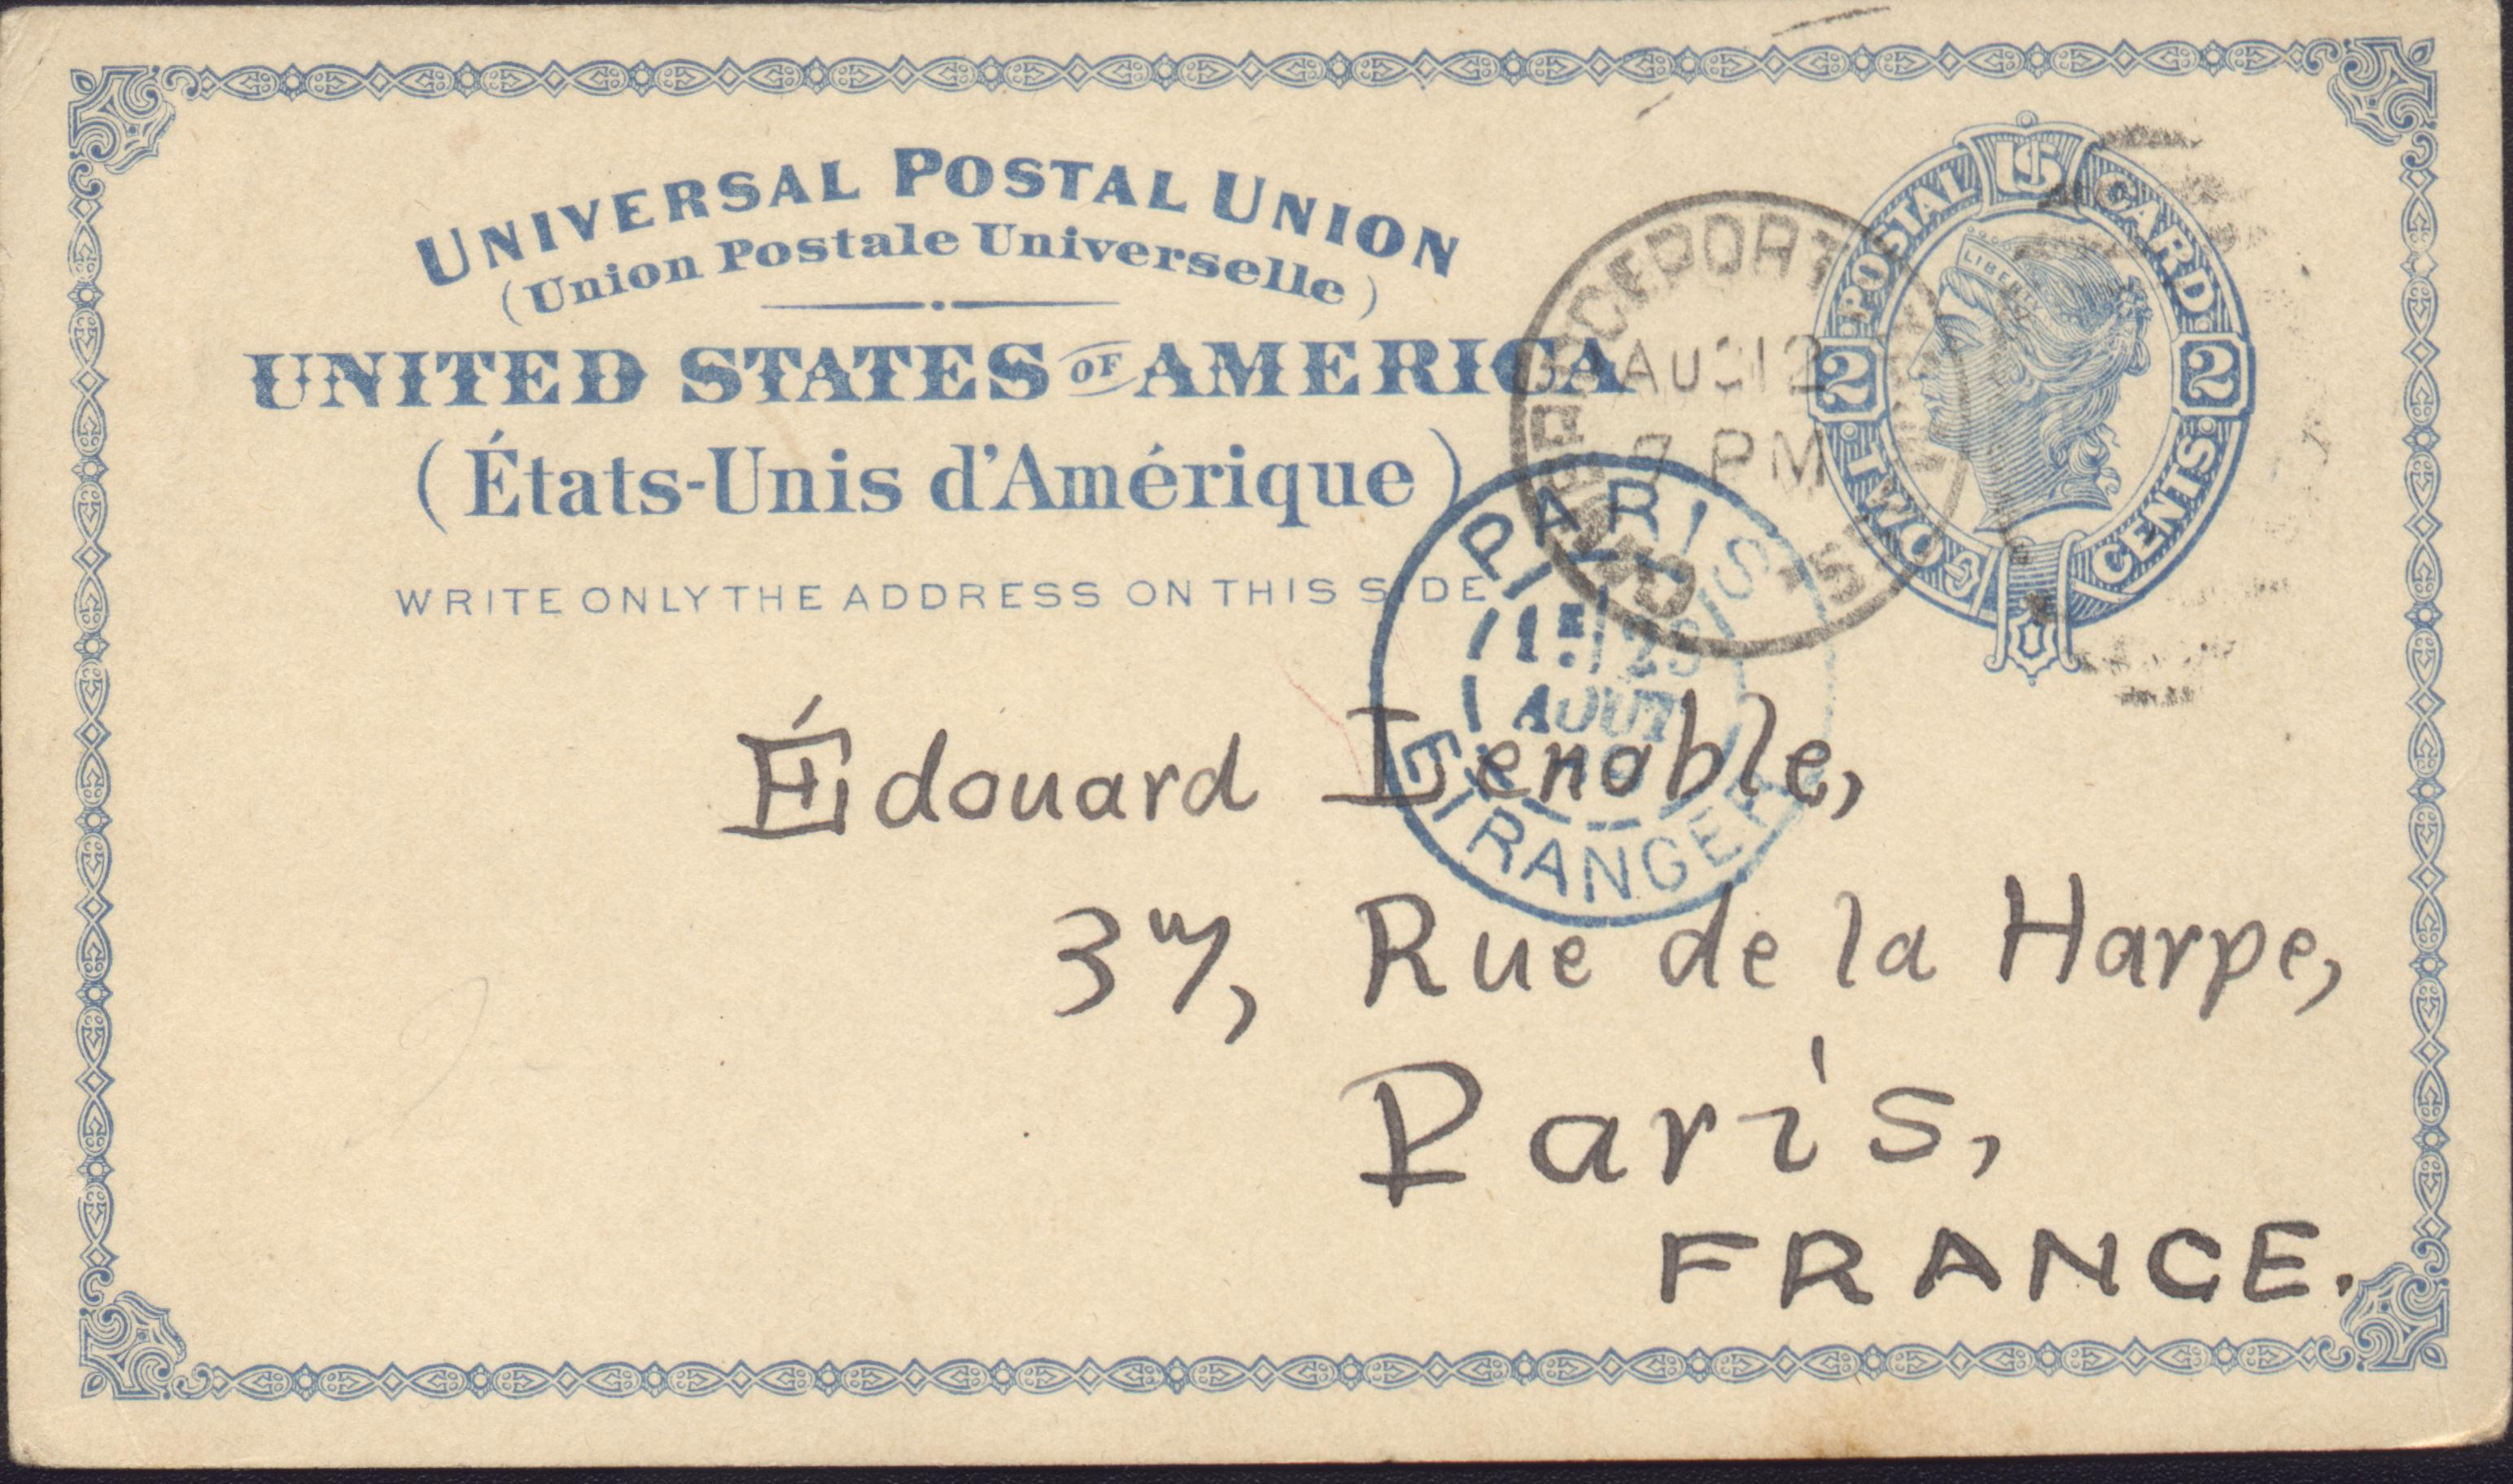 UNIVERSAL POSTAL UNION
(Union Postale Universelle)
UNITED STATES OF AMERICA
(États-Unis d'Amérique)
WRITE ONLY THE ADDRESS ON THIS SIDE
US
POSTAL CARD
LIBERTY
2 2
TWO CENTS
AUG 12
PM
PARIS
1E 23
AOUT
ETRANGER
Édouard Lenoble,
37, Rue de la Harpe,
Paris,
FRANCE.